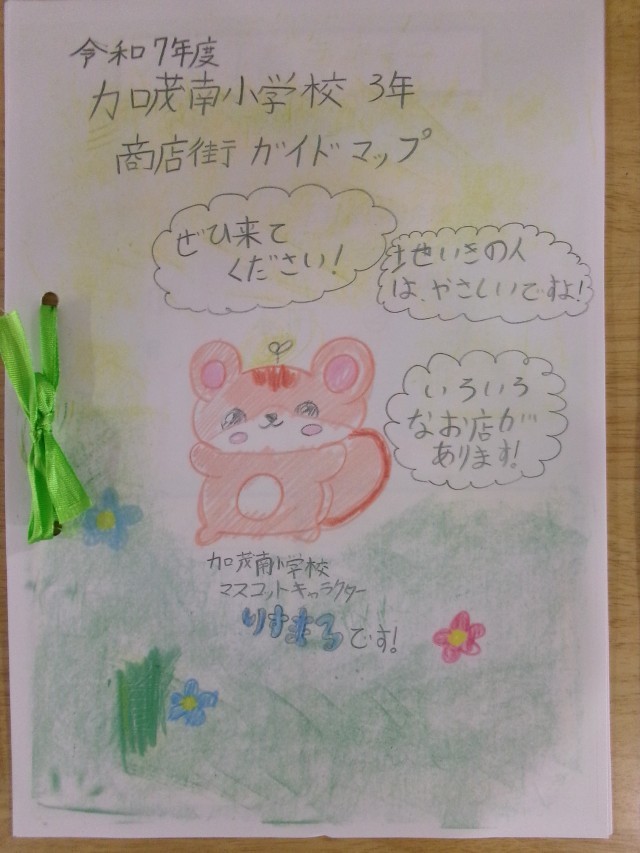 令和7年度
加茂南小学校 3年
商店街 ガイドマップ
ぜひ来て
ください!
地いきの人
は、やさしいですよ!
いろいろ
なお店が
あります!
加茂南小学校
マスコットキャラクター
りすまろです!